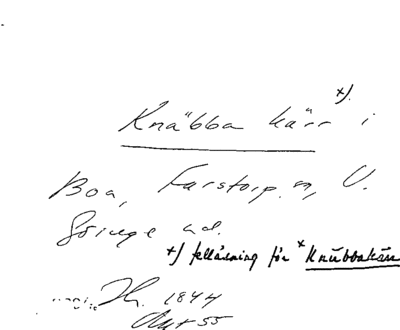 Knäbba kärr x) i
Boa, Farstorp sn, V.
Göinge hd.
x) felläsning för *Knubbakärr
1844